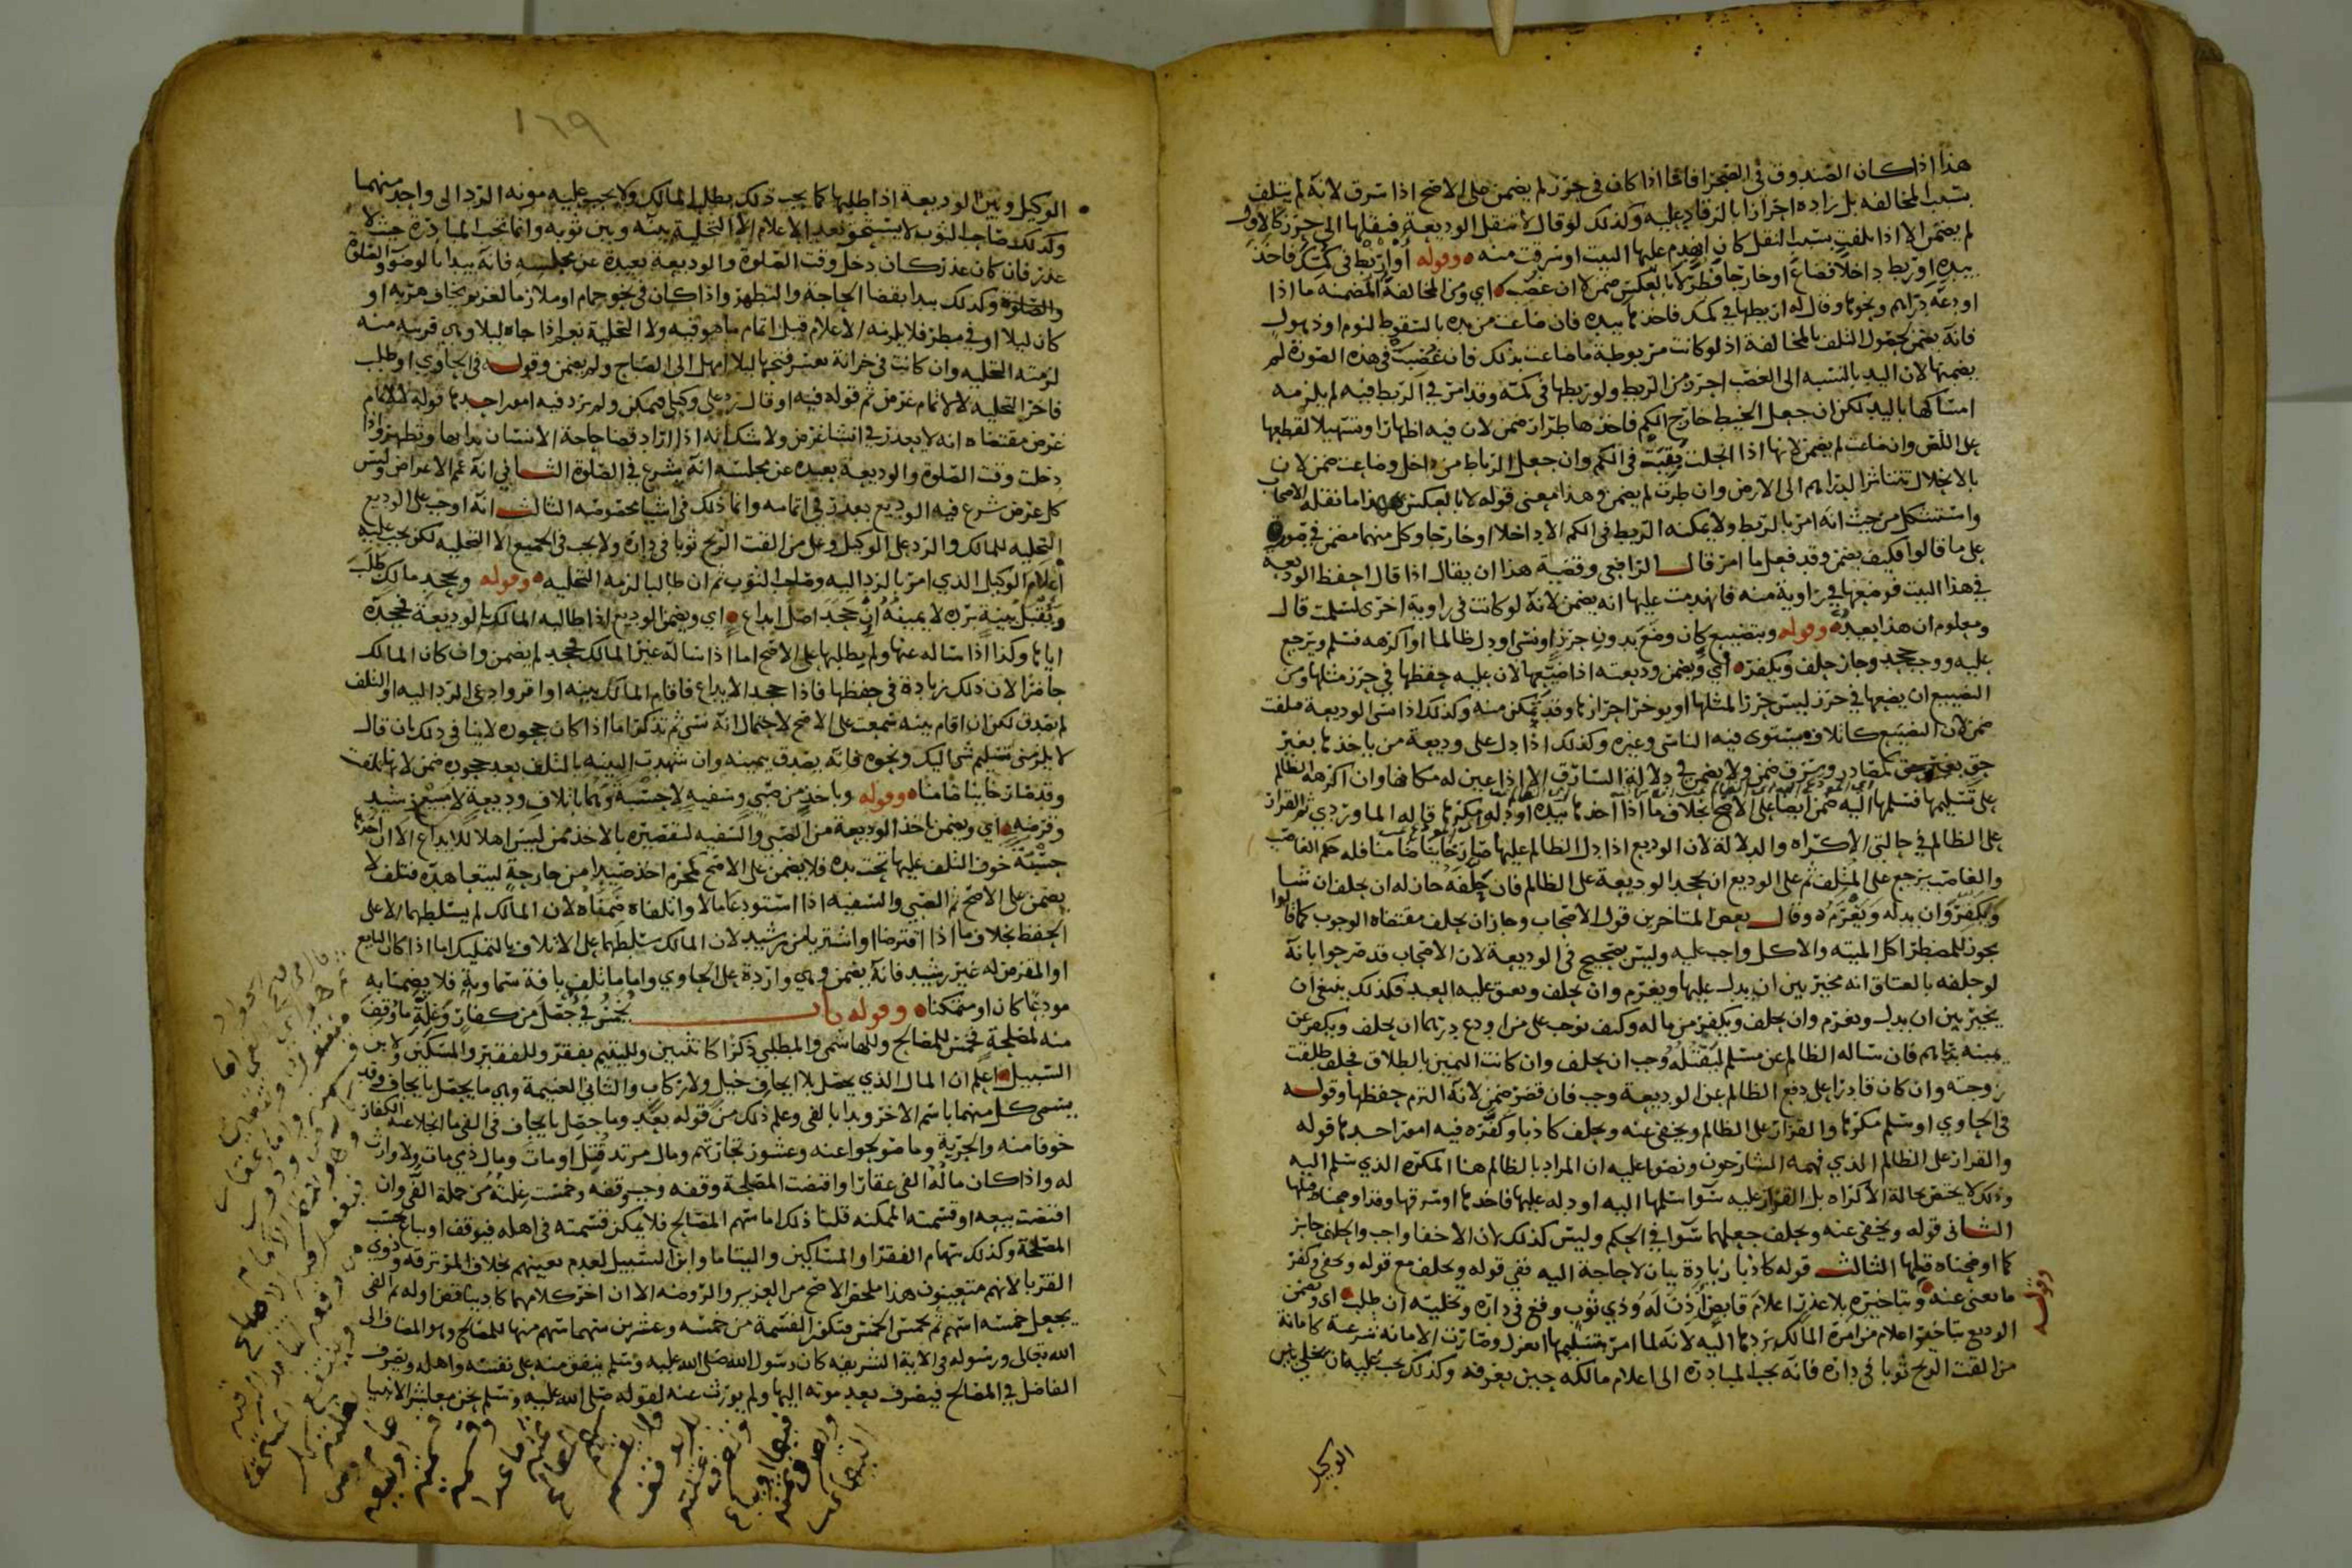 هذا اذا كان الصندوق في الصحرا فاما اذا كان في حرز لم يضمن على الاصح اذا سرق لانه لم يتلف
بسبب المخالفه بل زاده احرازا بالرقاد عليه وكذلك لو قال لا تنقل الوديعة فنقلها الى حرز كالاول
لم يضمن الا اذا تلفت بسبب النقل كان انهدم عليها البيت او سرقت منه وقوله أو اربط في كمك فاخذ
بيده او ربط داخلا فضاع او خارجا فطر لا بالعكس ضمن لا ان غصب اي ومن المخالفة المضمنه ما اذا
اودعه دراهم ونحوها وقال له اربطها في كمك فاخذها بيده فان ضاعت من يده بالسقوط لنوم او ذهول
فانه يضمن لحصول التلف بالمخالفة اذ لو كانت مربوطة ما ضاعت بذلك فان غصبت في هذه الصورة لم
يضمنها لان اليد بالنسبه الى الغصب احرز من الربط ولو ربطها في كمه وقد امر في الربط فيه لم يلزمه
امساكها باليد لكن ان جعل الخيط خارج الكم فاخذها طرار ضمن لان فيه اظهارا وتسهيلا لقطعها
على اللص وان ضاعت لم يضمن لانها اذا انحلت بقيت في الكم وان جعل الرباط من داخل وضاعت ضمن لان
بالانحلال تتناثر الدراهم الى الارض وان طرت لم يضمن وهذا معنى قوله لا بالعكس هذا ما نقله الاصحاب
واستشكل من حيث انه امر بالربط ولا يمكنه الربط في الكم الا داخلا او خارجا وكل منهما مضمن في صورة
على ما قالوا فكيف يضمن وقد فعل ما امر قال الرافعي وقضية هذا ان يقال اذا قال احفظ الوديعة
في هذا البيت فوضعها في زاوية منه فانهدمت عليها انه يضمن لانه لو كانت في زاوية اخرى لسلمت قال
ومعلوم ان هذا بعيد وقوله وبتضييع كان وضع بدون حرز او نسي او دل ظالما او اكرهه فسلم ويرجع
عليه ووجب جحد وجاز حلف ويكفر اي ويضمن وديعته اذا ضيعها لان عليه حفظها في حرز مثلها ومن
التضييع ان يضعها في حرز ليس حرزا لمثلها او يوخر احرازها وقد تمكن منه وكذلك اذا نسي الوديعة فتلفت
ضمن لان التضييع كاتلاف يستوى فيه الناسي وغيره وكذلك اذا دل على وديعة من ياخذها بغير
حق كمصادر وسرق ضمن ولا يضمن في دلالة السارق الا اذا عين له مكانها وان اكرهه الظالم
على تسليمها فسلمها اليه ضمن ايضا على الاصح بخلاف ما اذا اخذها بيده او دله مكرها قاله الماوردي ثم القرار
على الظالم في حالتي الاكراه والدلالة لان الوديع اذا دل الظالم عليها صار خاينا ضامنا فله حكم الغاصب
والغاصب يرجع على المتلف ثم على الوديع ان يجحد الوديعة على الظالم فان حلفه جاز له ان يحلف ان شا
ويكفر وان يدله ويغرمه وقال بعض المتاخرين قول الاصحاب وجاز ان يحلف مقتضاه الوجوب كما قالوا
يجوز للمضطر اكل الميته والاكل واجب عليه وليس بصحيح في الوديعة لان الاصحاب قد صرحوا بانه
لو حلفه بالعتاق انه مخير بين ان يدل عليها ويغرم وان يحلف ويعتق عليه العبد فكذلك ينبغي ان
يخير بين ان يدل ويغرم وان يحلف ويكفر من ماله وكيف نوجب على من اودع درهما ان يحلف ويكفر عن
يمينه بدراهم فان ساله الظالم عن مسلم ليقتله وجب ان يحلف وان كانت اليمين بالطلاق فحلف طلقت
زوجته وان كان قادرا على دفع الظالم عن الوديعة وجب فان قصر ضمن لانه التزم حفظها وقوله
في الحاوي او سلم مكرها والقرار على الظالم ويخفى عنه ويحلف كاذبا وكفر فيه امور احدها قوله
والقرار على الظالم الذي فهمه الشارحون ونصوا عليه ان المراد بالظالم هنا المكره الذي سلم اليه
وذلك لا يختص بحالة الاكراه بل القرار عليه سوا سلمها اليه او دله عليها فاخذها او سرقها وقد اوضحناه قبلها
الثاني قوله ويخفى عنه ويحلف جعلهما سوا في الحكم وليس كذلك لان الاخفا واجب والحلف جايز
كما اوضحناه قبلها الثالث قوله كاذبا زيادة بيان لا حاجة اليه ففي قوله ويحلف مع قوله ويخفي وكفر
ما يغني عنه وبتاخيره بلا عذر اعلام قابض اذن له وذي ثوب وقع في داره وتخليته ان طلب اي ويضمن
الوديع بتاخير اعلام من امره المالك بردها اليه لانه لما امر بتسليمها انعزل وصارت الامانه شرعية كامانة
من القت الريح ثوبا في داره فانه يجب المبادرة الى اعلام مالكه حين يعرفه وكذلك يجب عليه ان يخلي بين
وقوله
الوكيل
١٦٩
الوكيل وبين الوديعة اذا طلبها كما يجب ذلك بطلب المالك ولا يجب عليه مونه الرد الى واحد منهما
وكذلك صاحب الثوب لا يستحق بعد الاعلام الا التخلية بينه وبين ثوبه وانما تجب المبادرة حيث لا
عذر فان كان عذر كان دخل وقت الصلوة والوديعة بعيدة عن مجلسه فانه يبدا بالوضو والصلوة
وكذلك يبدا بقضا الحاجة والتطهر واذا كان في نحو حمام او ملازما لغريم يخاف هربه او
كان ليلا او في مطر فلا يلزمه الاعلام قبل اتمام ما هو فيه ولا التخلية نعم اذا جاه ليلا وهي قريبه منه
لزمته التخليه وان كانت في خزانة يعسر فتحها ليلا امهل الى الصباح ولم يضمن وقوله في الحاوي او طلب
فاخر التخليه لا لاتمام غرض ثم قوله فيه او قال رد على وكيلي فتمكن ولم يرد فيه امور احدها قوله لا لاتمام
غرض مقتضاه انه لا يعذر في انشا غرض ولا شك انه اذا اراد قضا حاجة الانسان بدا بها وتطهر واذا
دخلت وقت الصلوة والوديعة بعيده عن مجلسه انه يشرع في الصلوة الثاني انه عم الاغراض وليس
كل غرض شرع فيه الوديع يعذر في اتمامه وانما ذلك في اشيا مخصوصه الثالث انه اوجب على الوديع
التخليه للمالك والرد على الوكيل وعلى من القت الريح ثوبا في داره ولا يجب في الجميع الا التخليه لكن يجب عليه
اعلام الوكيل الذي امر بالرد اليه وصاحب الثوب ثم ان طالبا لزمه التخليه وقوله وبجحد مالك طلب
وتقبل بينة برده لا يمينه ان جحد اصل ايداع اي ويضمن الوديع اذا طالبه المالك بالوديعة فجحده
اياها وكذا اذا ساله عنها ولم يطلبها على الاصح اما اذا ساله غير المالك فجحد لم يضمن وان كان المالك
حاضرا لان ذلك زيادة في حفظها فاذا جحد الايداع فاقام المالك بينه او اقر وادعى الرد اليه او التلف
لم يصدق لكن ان اقام بينه سمعت على الاصح لاحتمال انه نسي ثم تذكر اما اذا كان جحوده لا ينافي ذلك بان قال
لا يلزمني تسليم شي اليك ونحوه فانه يصدق بيمينه وان شهدت البينه بالتلف بعد جحوده ضمن لانها تلفت
وقد صار خاينا ضامنا وقوله وباخذ من صبي وسفيه لا حسبة وهما باتلاف وديعة لا مبيع رشيد
وقرضه اي ويضمن باخذ الوديعة من الصبي والسفيه لتقصيره بالاخذ ممن ليس اهلا للايداع الا ان اخذها
حسبة خوف التلف عليها تحت يده فلا يضمن على الاصح كمحرم اخذ صيدا من جارحة ليتعاهده فتلف لا
يضمن على الاصح ثم الصبي والسفيه اذا استودعا مالا واتلفاه ضمناه لان المالك لم يسلطهما الا على
الحفظ بخلاف ما اذا اقترضا او اشتريا من رشيد لان المالك سلطهما على الاتلاف بالتمليك اما اذا كان البايع
او المقرض له غير رشيد فانه يضمن وهي واردة على الحاوي واما ما تلف بافة سماوية فلا يضمنا به
مودعا كان او متملكا وقوله باب يخمس في حصل من كفار وغلة ما وقف
منه لمصلحة فخمس للمصالح وللهاشمي والمطلبي ذكرا كانثيين ولليتيم بفقر وللفقير والمسكين ولابن
السبيل اعلم ان المال الذي يحصل بلا ايجاف خيل ولا ركاب والثاني الغنيمة وهي ما يحصل بايجاف وقد
يسمى كل منهما باسم الاخر وبدا بالفي وعلم ذلك من قوله بعد وما حصل بايجاف في الفي ما انجلا عنه الكفار
خوفا منه والجزية وما صولحوا عنه وعشور تجارتهم ومال مرتد قتل او مات ومال ذمي مات ولا وارث
له واذا كان مال الفي عقارا واقتضت المصلحة وقفه وجب وقفه وخمست غلته من جملة الفي وان
اقتضت بيعه او قسمته الممكنه قلنا ذلك اما سهم المصالح فلا يمكن قسمته في اهله فيوقف او يباع بحسب
المصلحة وكذلك سهام الفقرا والمساكين واليتاما وابن السبيل لعدم تعينهم بخلاف المرتزقه وذوي
القربا لانهم متعينون هذا ملخص الاصح من العزيز والروضه الا ان اخر كلامهما كاد يناقض اوله ثم الفي
يجعل خمسة اسهم ثم يخمس الخمس فتكون القسمة من خمسه وعشرين سهما سهم منها للمصالح وهو المضاف الى
الله تعالى ورسوله في الاية الشريفه كان رسول الله صلى الله عليه وسلم ينفق منه على نفسه واهله ويصرف
الفاضل في المصالح فيصرف بعد موته اليها ولم يورث عنه لقوله صلى الله عليه وسلم نحن معاشر الانبيا